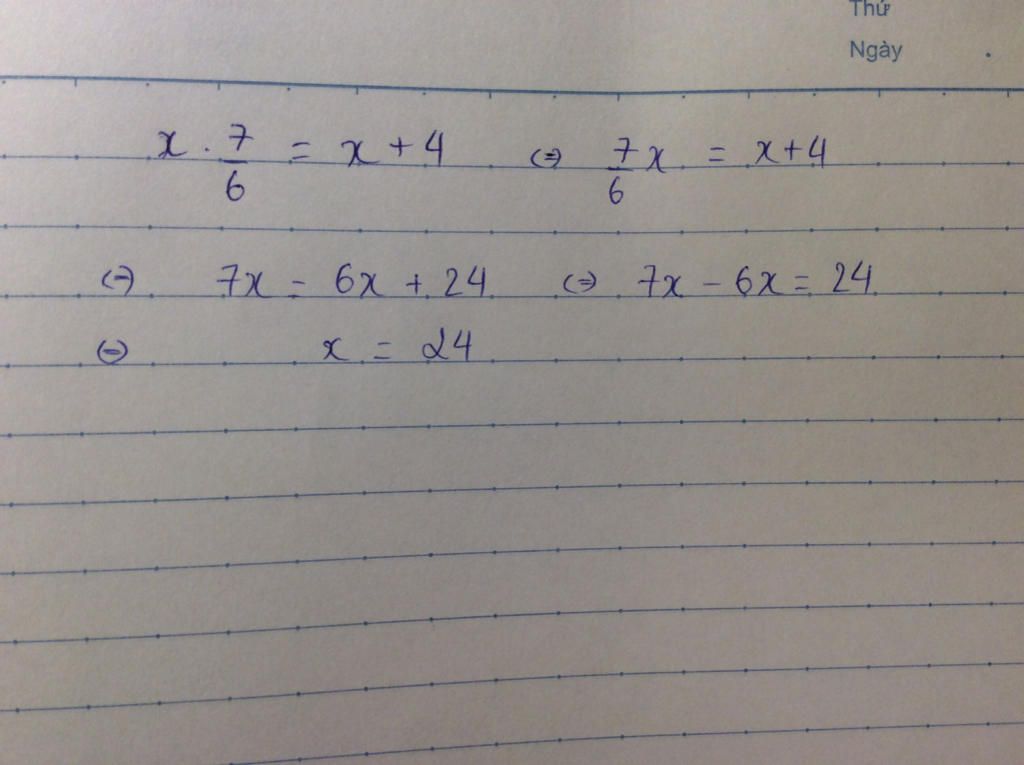 Thứ
Ngày
x . 7/6 = x + 4 <=> 7/6 x = x + 4
<=> 7x = 6x + 24 <=> 7x - 6x = 24
<=> x = 24